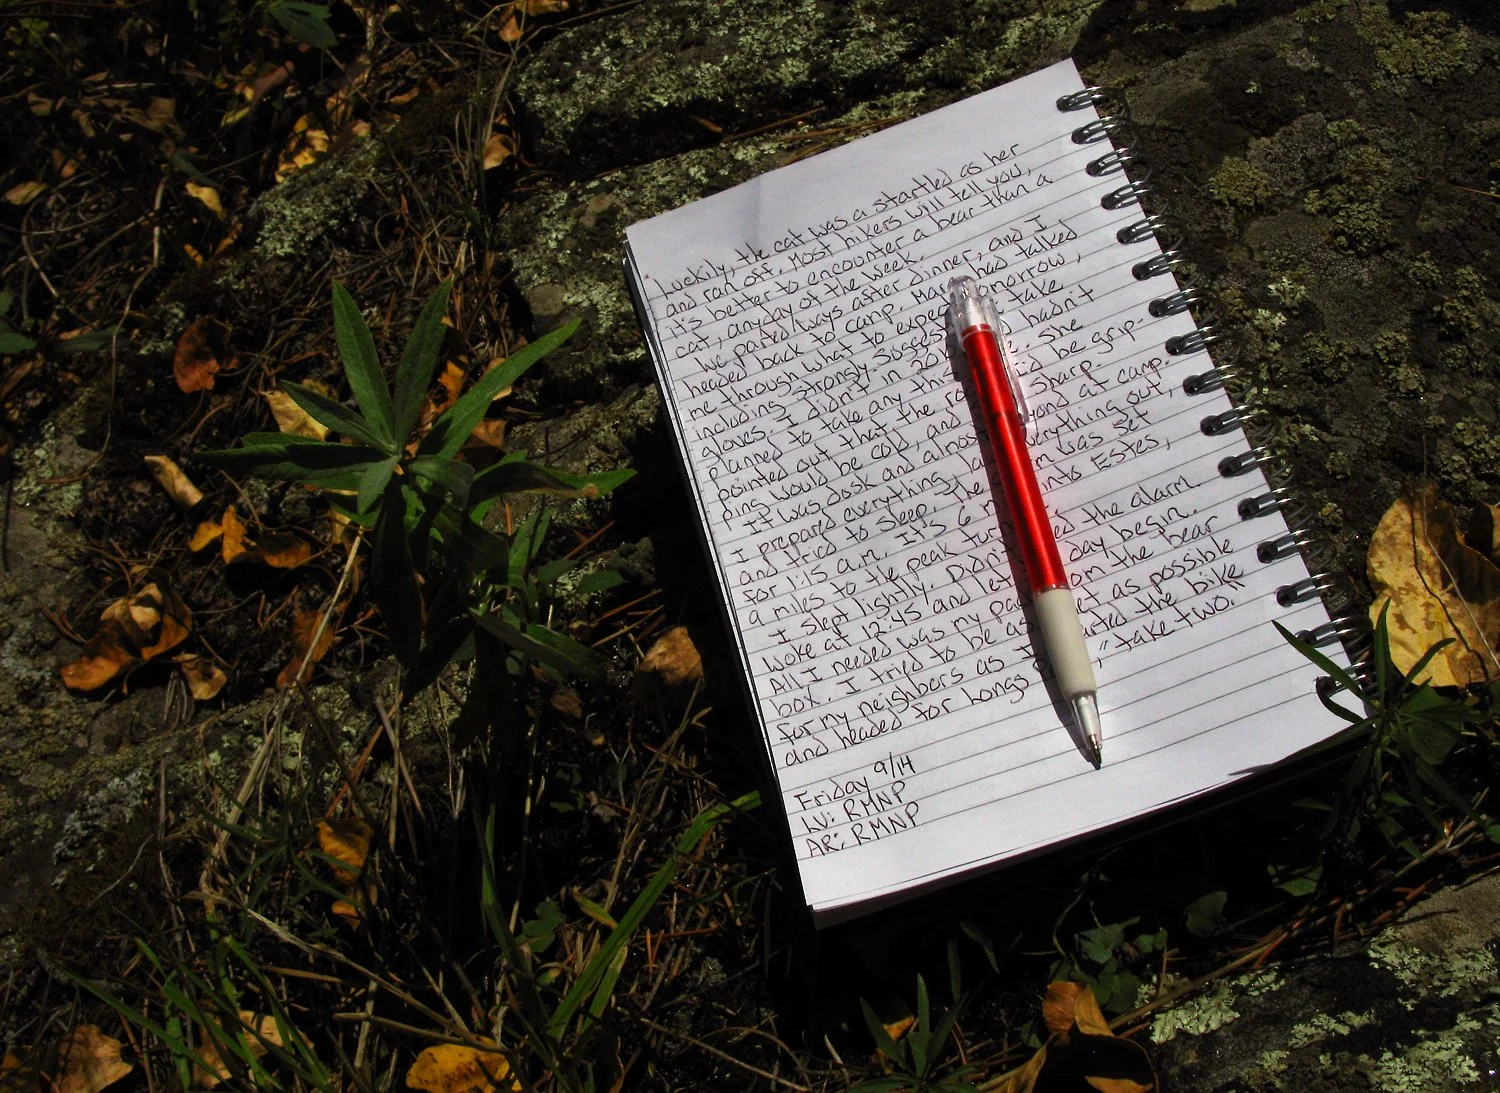 Luckily, the cat was a startled as her
and ran off. Most hikers will tell you,
it's better to encounter a bear than a
cat, anyday of the week.
We parted ways after dinner, and I
headed back to camp. had talked
me through what to tomorrow,
including strongly take
gloves. I didn't in 2010 hadn't
planned to take any this She
pointed out that the be grip-
ping would be cold, and sharp.
It was dusk and almost at camp.
I prepared everything, everything out,
and tried to sleep. The was set
for 1:15 a.m. It's 6 into Estes,
a miles to the peak
I slept lightly. Didn't the alarm.
Woke at 12:45 and let day begin.
All I needed was my from the bear
box. I tried to be as as possible
for my neighbors as I the bike
and headed for Longs "take two."
Friday 9/14
LV: RMNP
AR: RMNP